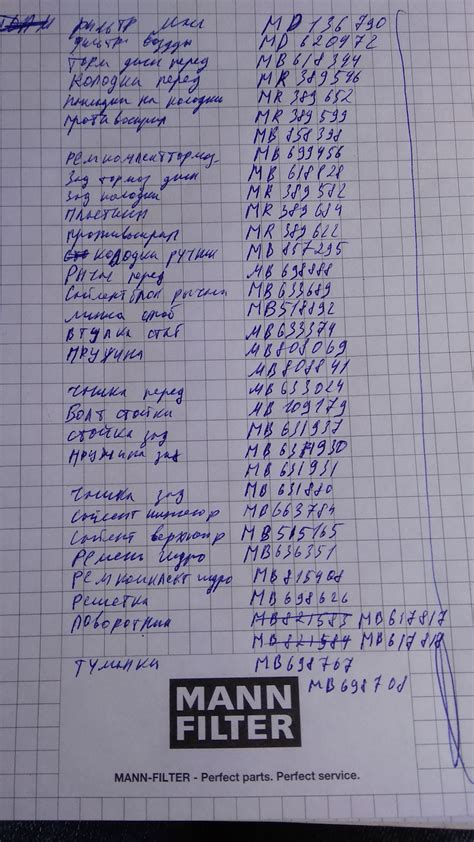 фильтр масл MD 136 790
фильтр воздуш MD 620472
Торм диски перед MB 618344
колодка перед MR 389546
накладки на колодки MR 389 652
противоскрип MR 389 599
MB 858 398
Ремкомплект тормоз. MB 699456
Зад тормоз диск MB 618828
Зад колодки MR 389 582
Пластины MR 389 684
противоскрип MR 389 622
колодка ручник MB 857295
Рычаг перед MB 698888
Сайлентблок рычага MB 633689
линка стаб MB518892
втулка стаб MB633374
пружина MB808069
MB808841
чашка перед MB 633024
Болт стойки MB 109179
стойка зад MB 631937
пружина зад
MB 631931
чашка зад MB 631880
Сайлент MB663784
Сайлент верхн MB 515165
Ремень гидро MB636351
Ремкомплект гидро MB815408
Решетка MB 698626
поворотник MB821583 MB617817
MB821584 MB617818
туманка MB698767
MB698708
MANN
FILTER
MANN-FILTER - Perfect parts. Perfect service.